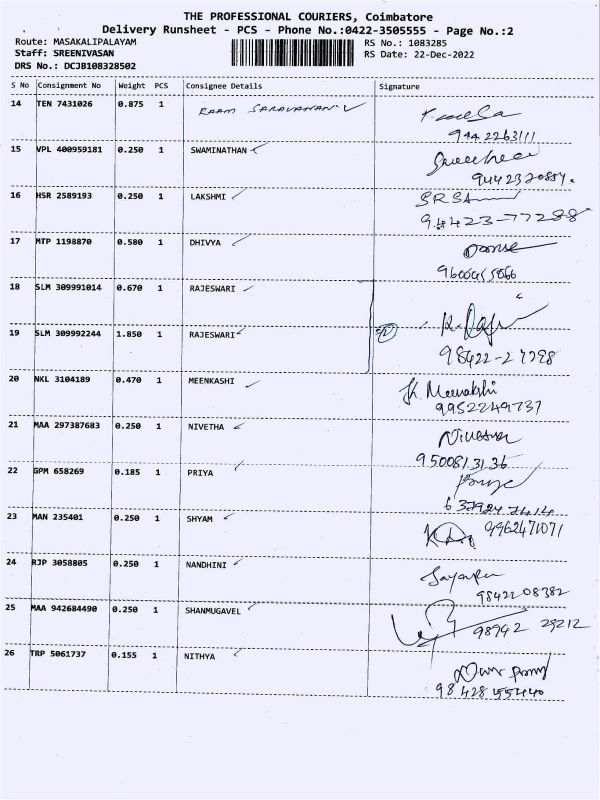 THE PROFESSIONAL COURIERS, Coimbatore
Delivery Runsheet - PCS - Phone No.:0422-3505555 - Page No.:2
Route: MASAKALIPALAYAM RS No.: 1083285
Staff: SREENIVASAN RS Date: 22-Dec-2022
DRS No.: DCJB108328502
S No Consignment No Weight PCS Consignee Details Signature
14 TEN 7431026 0.875 1 RAAM SARAVANAN
9442263111
15 VPL 400959181 0.250 1 SWAMINATHAN
16 HSR 2589193 0.250 1 LAKSHMI SRSA
94423-77288
17 MTP 1198870 0.580 1 DHIVYA
18 SLM 309991014 0.670 1 RAJESWARI
19 SLM 309992244 1.850 1 RAJESWARI K. Raji
98422-27298
20 NKL 3104189 0.470 1 MEENKASHI K. Meenakshi
9952249737
21 MAA 297387683 0.250 1 NIVETHA
9500813136
22 GPM 658269 0.185 1 PRIYA
23 MAN 235401 0.250 1 SHYAM 9962471071
24 RJP 3058805 0.250 1 NANDHINI
9842208382
25 MAA 942684490 0.250 1 SHANMUGAVEL
98942 29212
26 TRP 5061737 0.155 1 NITHYA